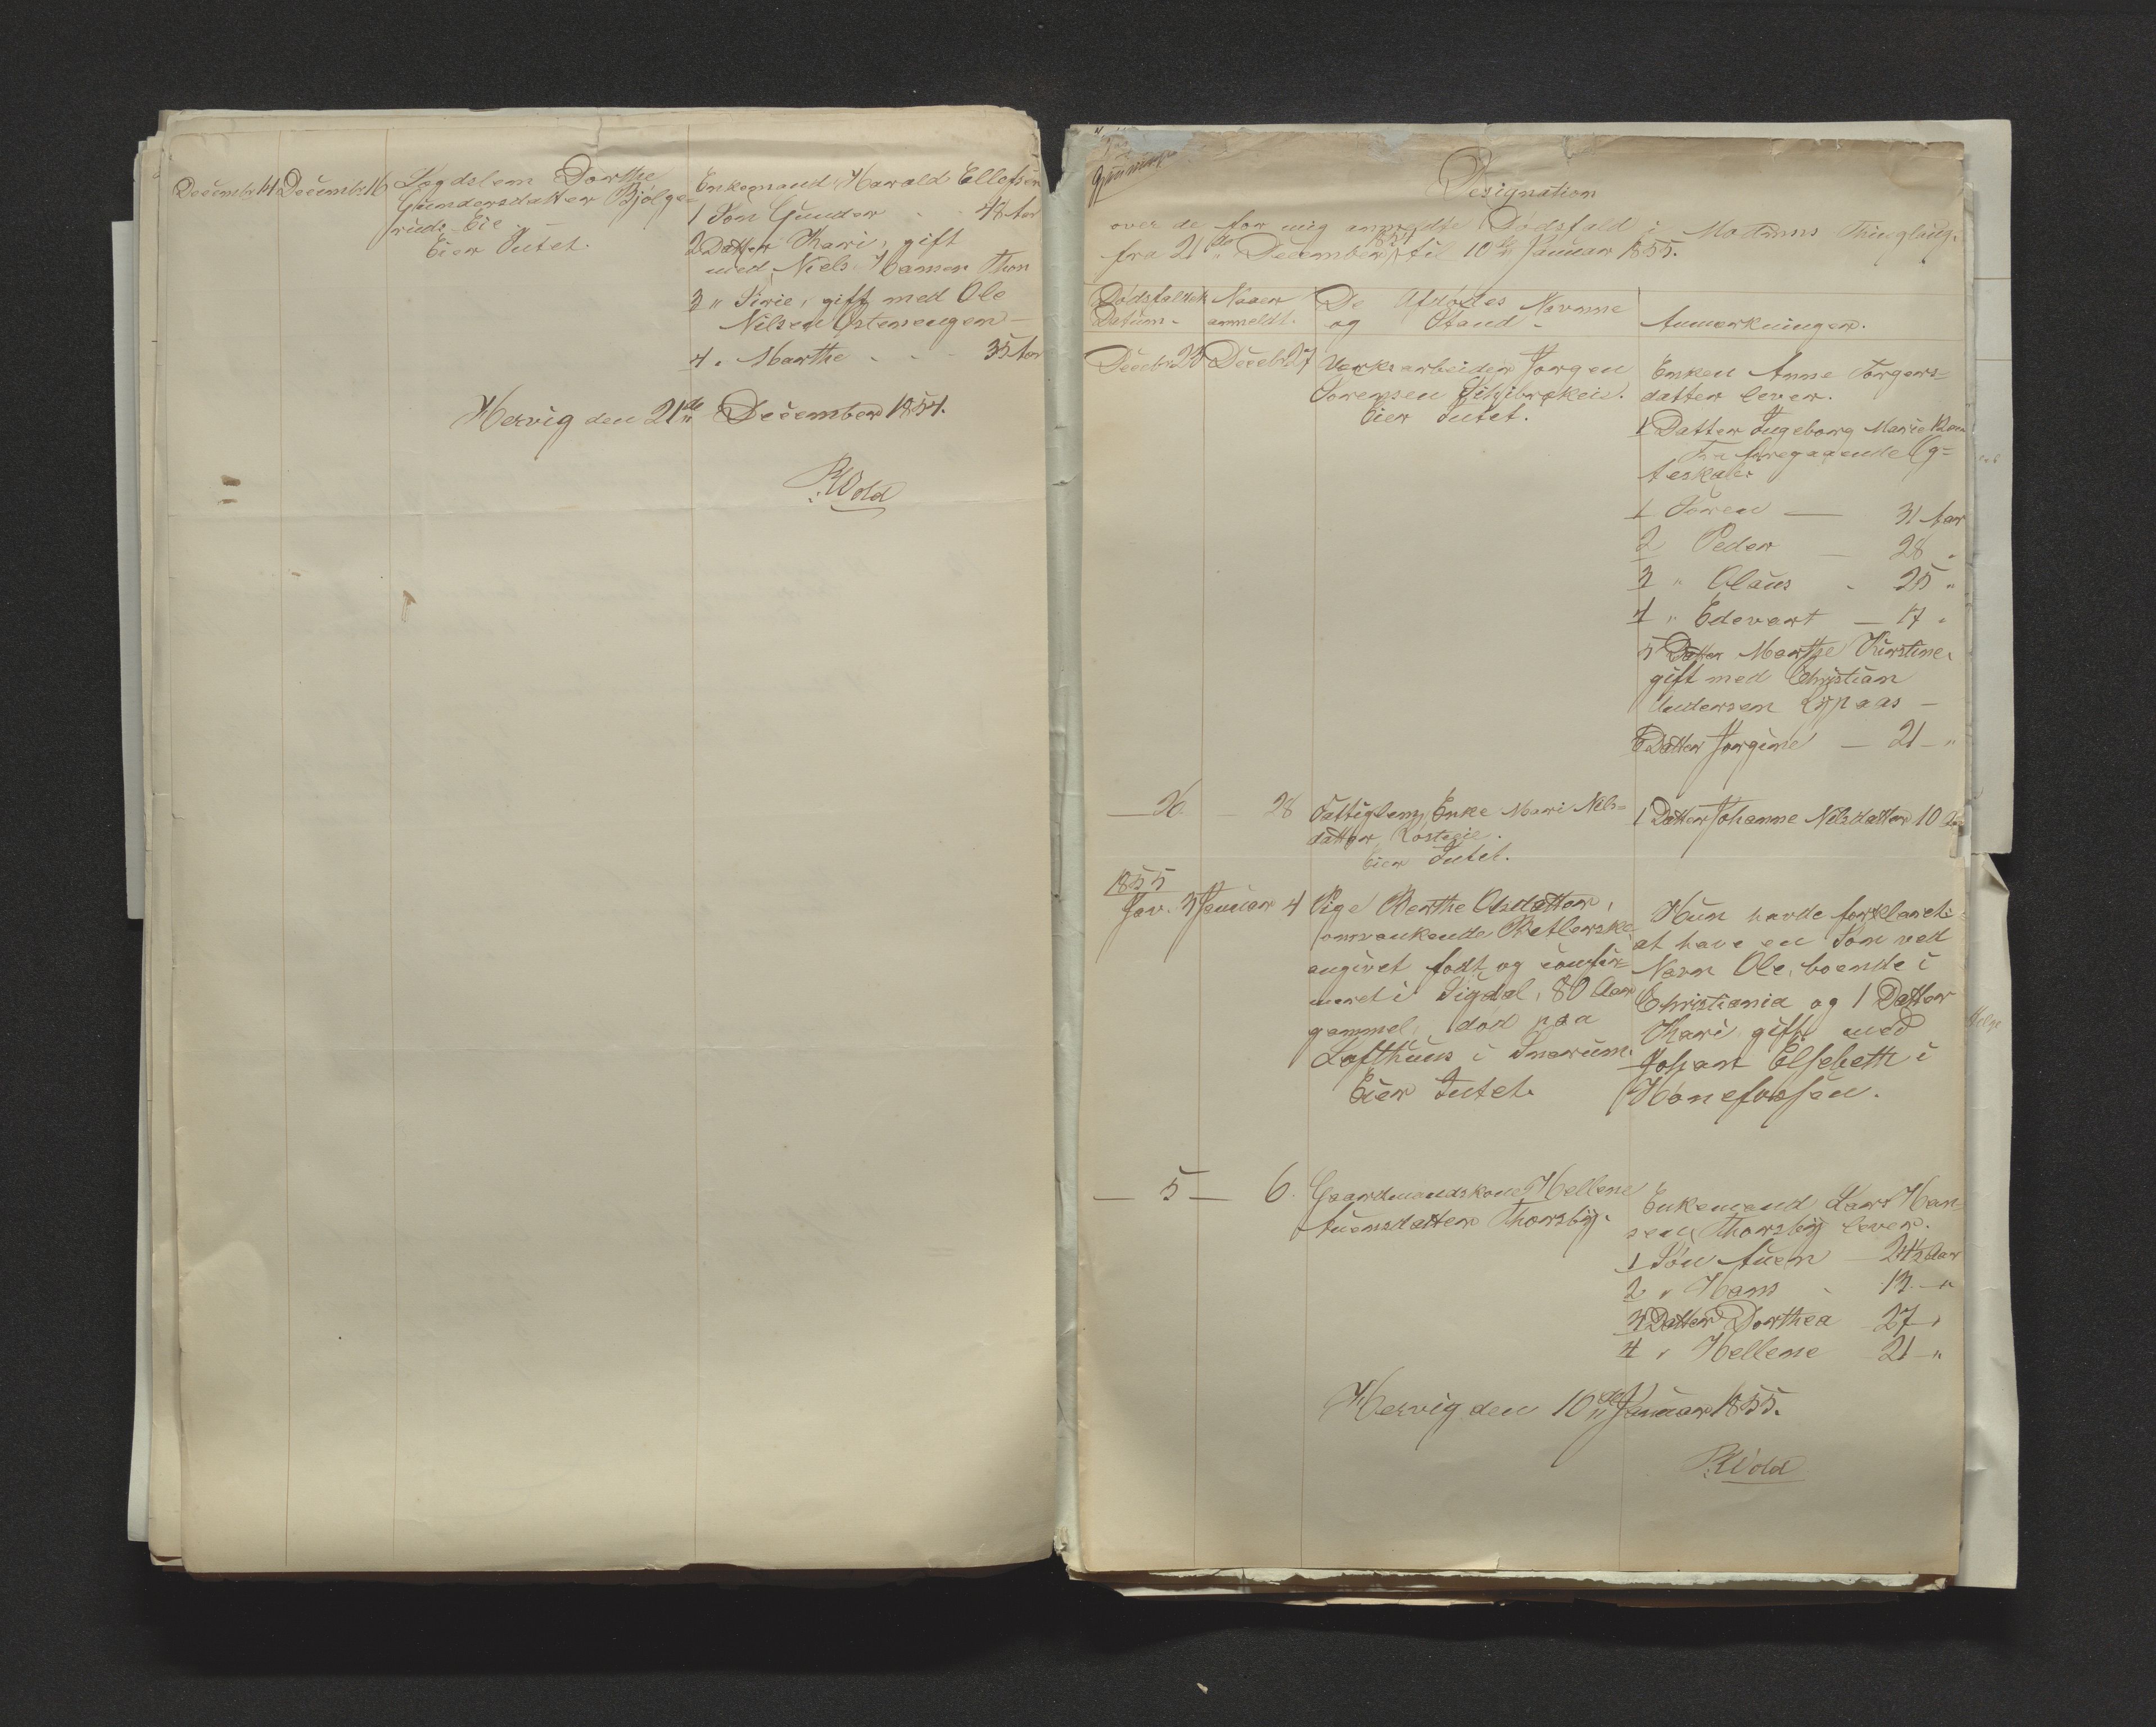 Decembr 14 Decembr 16 Lægdslem Dorthe
Gundersdatter Bjølge-
ruds Eie
Eier Intet.
Enkemand Harald Ellefsen
1 Søn Gunder - - 48 Aar
2 Datter Kari, gift
med Niels Hansen Thon
3 " Sirie, gift med Ole
Nilsen Østenengen -
4 " Marthe - - - 35 Aar
Hervig den 21de December 1854.
RWold
Designation
over de for mig anmeldte Dødsfald i Modums Thinglaug.
fra 21de December 1854 til 10de Januar 1855.
Dødsfaldets
Datum.
Naaer
anmeldt.
De Afdødes Navnne
og Stand.
Anmærkninger.
Decebr 23 Decebr 27 Værksarbeider Jørgen
Sørensen
Eier Intet.
Enken Anne Torgers=
datter lever.
1 Datter Ingeborg Marie 12 Aar
Fra foregaaende Æg=
teskab:
1 Søren — 31 Aar
2 Peder — 28 "
3 " Olaus - 25 "
4 " Edevart — 17 "
5 Datter Marthe Kirstine,
gift med Christian
Andersen Rypaas —
6 Datter Jørgine — 21 — "
— 26. — 28 Fattiglem, Enke Mari Nils=
datter
Eier Intet.
1 Datter Johanne Nilsdatter 10
1855
Jan. 3 Januar 4 Pige Berthe Olsdatter,
omvankende Betlerske
angivet født og confir=
meret i Sigdal, 80 Aar
gammel, død paa
Lofthuus i Snarum.
Eier Intet.
Hun havde forklaret
at have en Søn ved
Navn Ole, boende i
Christiania og 1 Datter
Kari gift med
Johan Elsebeth i
Hønefossen.
— 5 — 6. Gaardmandskone Hellene
Auensdatter Thorsby.
Enkemand Lars Han=
sen Thorsby lever.
1 Søn Auen — 24½ Aar
2 " Hans - 13 — "
3 Datter Dorthea 27 "
4 " Hellene 21 — "
Hervig den 10de Januar 1855.
RWold